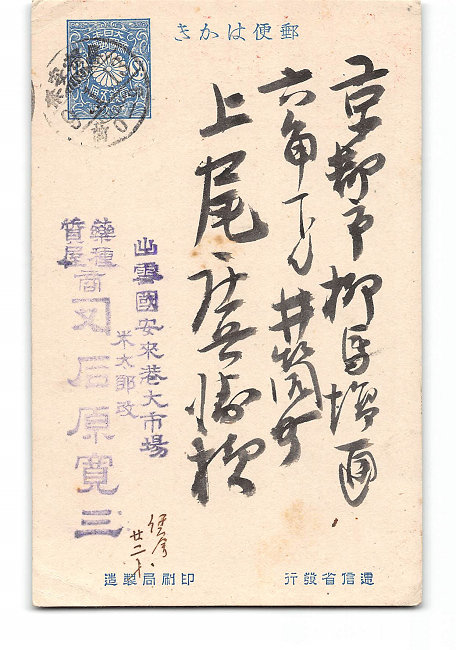 きかは便郵
京都市柳馬場通
六角下ル井筒町
上尾庄兵衛様
出雲國安來港大市場
米太郎改
藥種
質屋
商
石原寛三
廿二
造製局刷印
行發省信逓